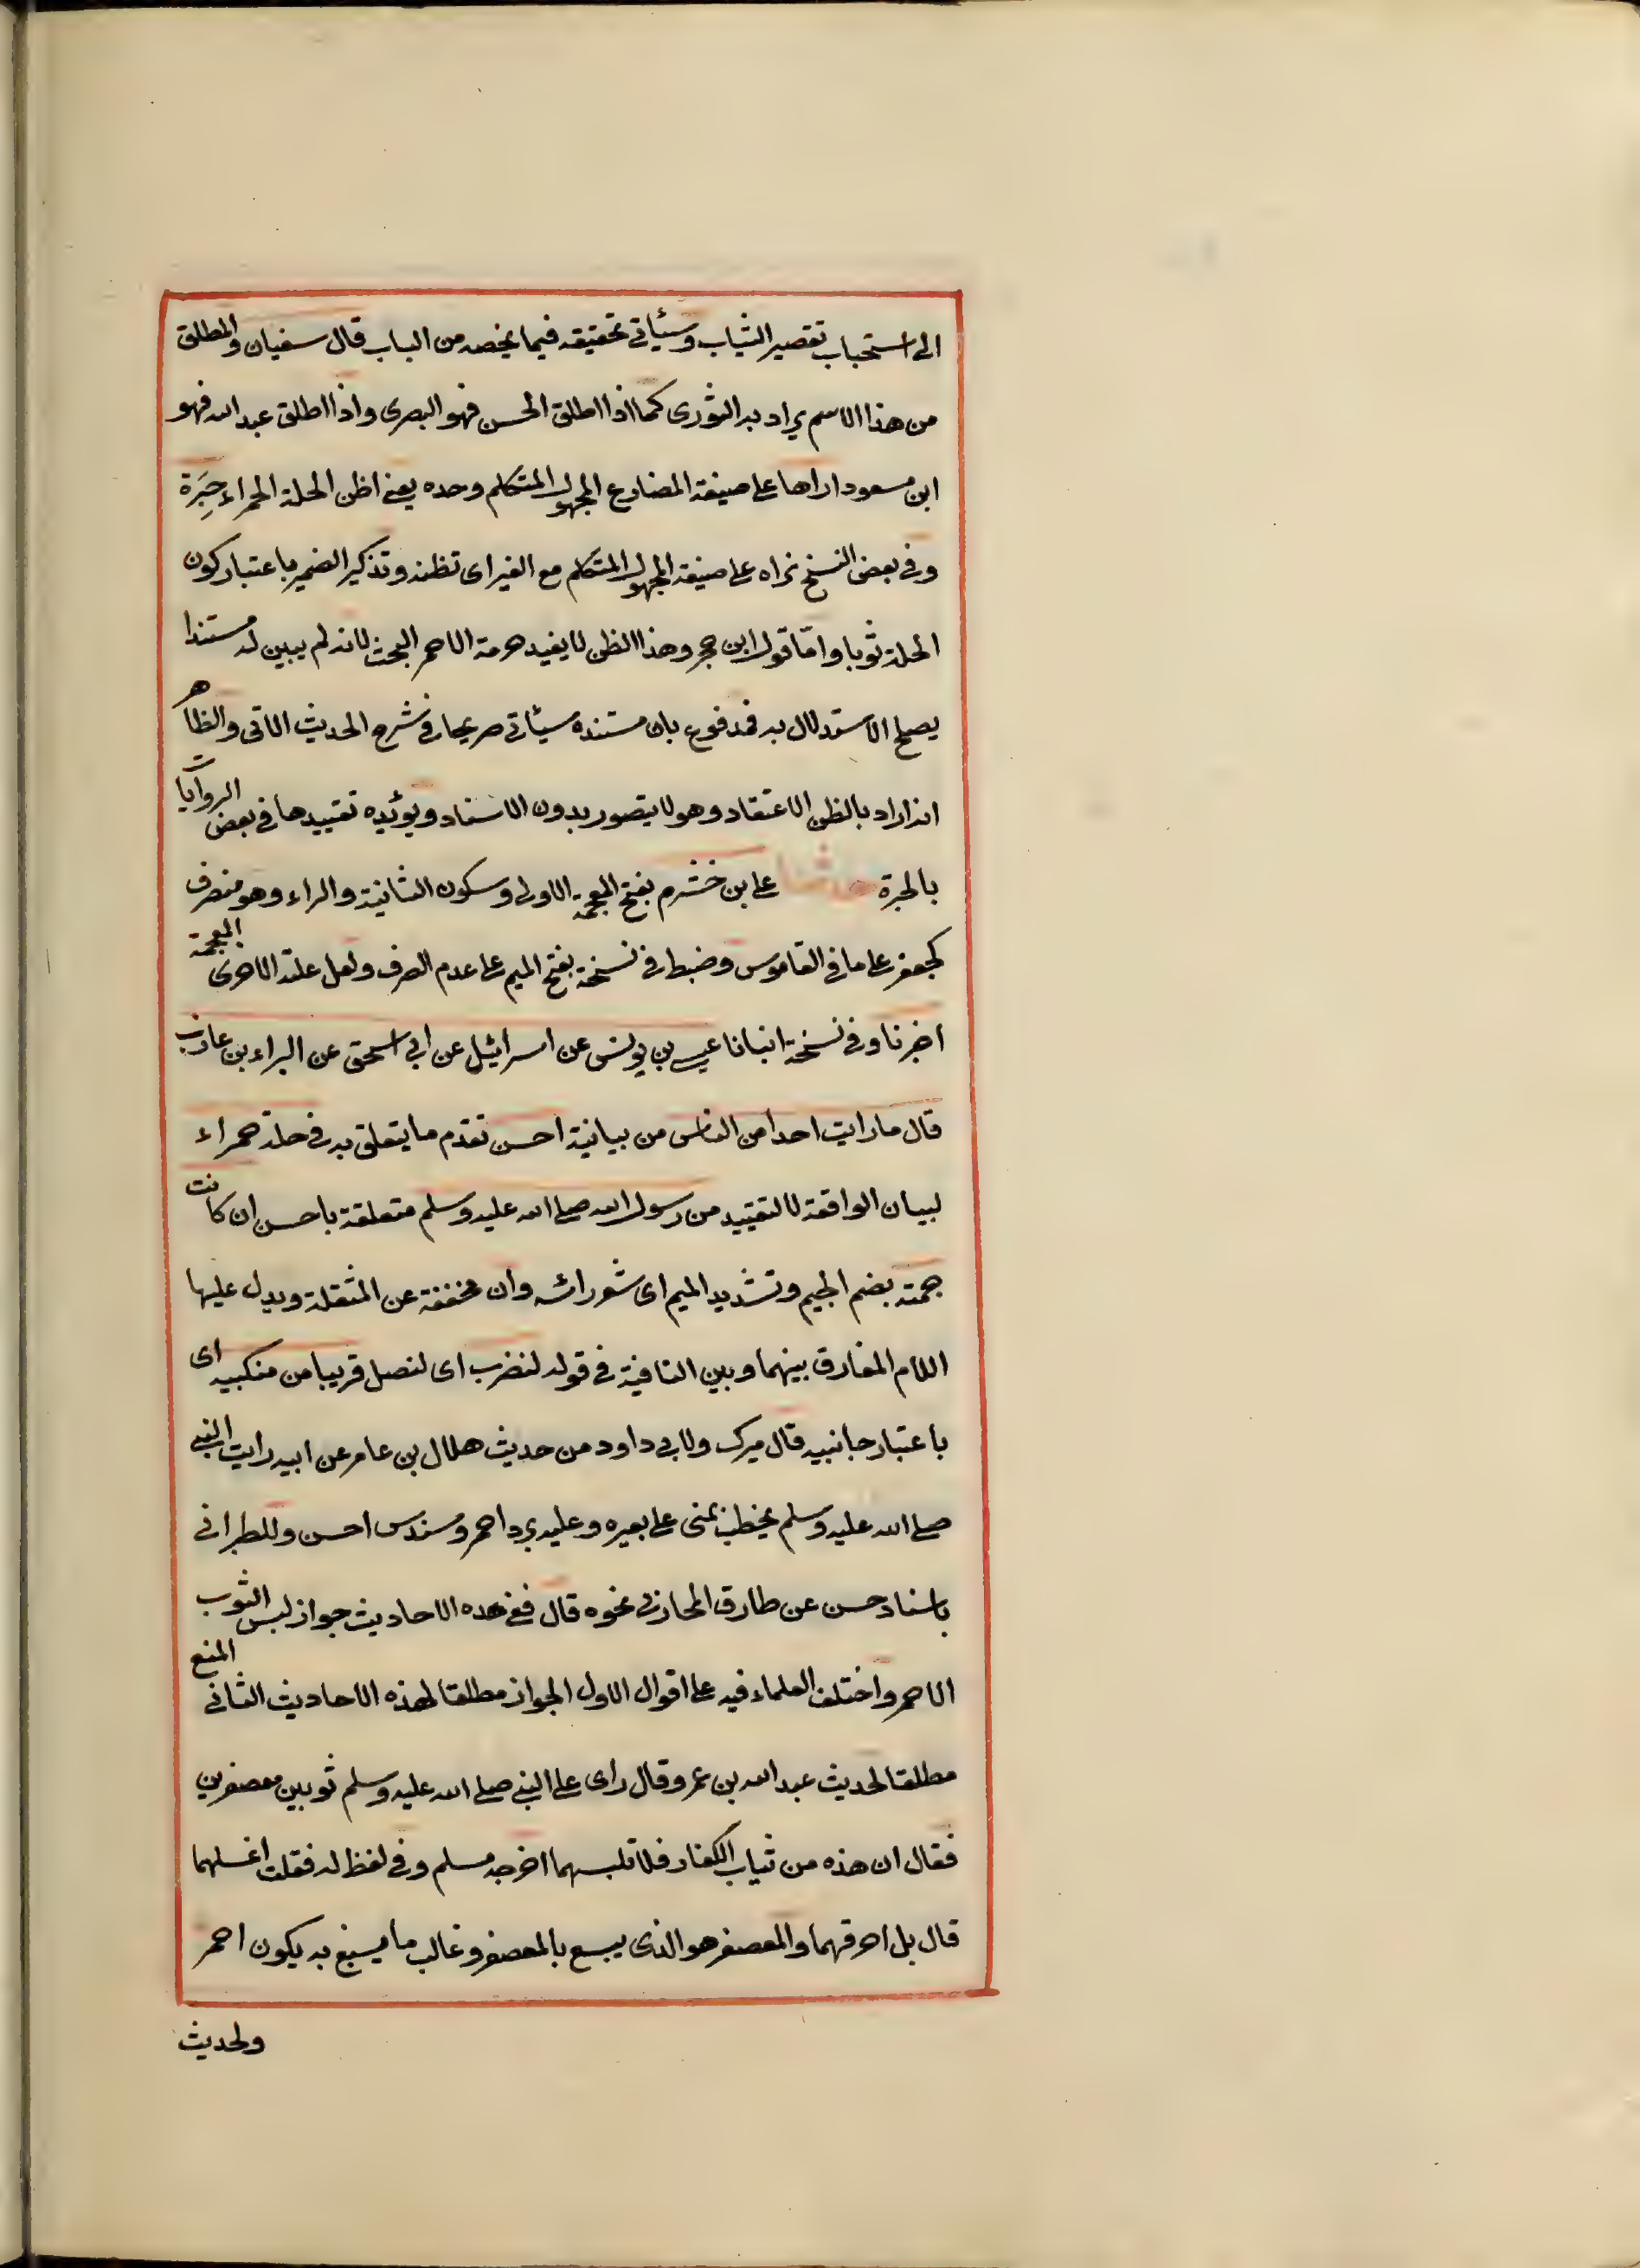 الى استحباب تقصير الثياب وسيأتى تحقيقه فيما يخصه من الباب قال سفيان والمطلق
من هذا الاسم يراد به الثورى كما اذا اطلق الحسن فهو البصرى واذا اطلق عبد الله فهو
ابن مسعود اراها على صيغة المضارع المجهول المتكلم وحده يعنى اظن الحلة الحمراء حِبَرة
وفى بعض النسخ نراه على صيغة المجهول المتكلم مع الغير اى نظنه وتذكير الضمير باعتبار كون
الحلة ثوبا وامّا قول ابن حجر وهذا الظن لا يفيد حرمة الاحمر البحت لانه لم يبين له مستندا
يصلح الاستدلال به فمدفوع بان مستنده سيأتى صريحا فى شرح الحديث الاتى والظاهر
انه اراد بالظن الاعتقاد وهو لا يتصور بدون الاسناد ويؤيده تقييدها فى بعض الروايات
بالحبرة حدثنا على بن خشرم بفتح المعجمة الاولى وسكون الثانية والراء وهو منصرف
كجعفر على ما فى القاموس وضبط فى نسخة بفتح الميم على عدم الصرف ولعل علته الاخرى العجمة
اخبرنا وفى نسخة انبانا عيسى بن يونس عن اسرائيل عن ابى اسحق عن البراء بن عازب
قال ما رايت احدا من الناس من بيانية احسن تقدم ما يتعلق به فى حلة حمراء
لبيان الواقعة لا للتقييد من رسول الله صلى الله عليه وسلم متعلقة باحسن ان كانت
جمته بضم الجيم وتشديد الميم اى شعر رأسه وان مخففة عن المثقلة ويدل عليها
اللام الفارق بينهما وبين النافية فى قوله لتضرب اى لتصل قريبا من منكبيه اى
باعتبار جانبيه قال ميرك ولابى داود من حديث هلال بن عامر عن ابيه رايت النبى
صلى الله عليه وسلم يخطب بمنى على بعيره وعليه برد احمر وسنده احسن وللطبرانى
باسناد حسن عن طارق المحاربى نحوه قال ففى هذه الاحاديث جواز لبس الثوب
الاحمر واختلف العلماء فيه على اقوال الاول الجواز مطلقا لهذه الاحاديث الثانى المنع
مطلقا لحديث عبد الله بن عمرو قال راى على النبى صلى الله عليه وسلم ثوبين معصفرين
فقال ان هذه من ثياب الكفار فلا تلبسهما اخرجه مسلم وفى لفظ له فقلت اغسلهما
قال بل احرقهما والمعصفر هو الذى يصبغ بالعصفر وغالب ما يصبغ به يكون احمر
ولحديث